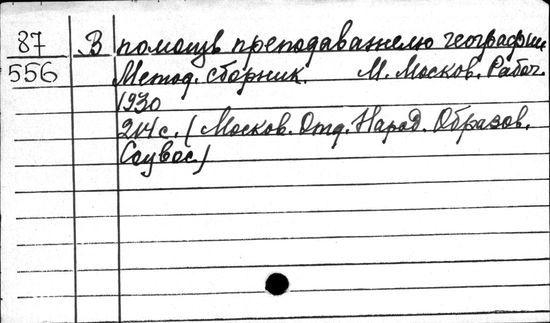 87 В помощь преподавателю географии
556 Метод. сборник. М. Москов. Рабоч.
1930
214 с. (Москов. Отд. Народ. Образов.
Соцвос)